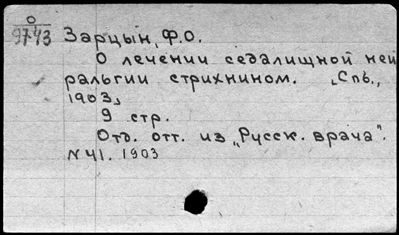 0
9743
Зарцын, Ф.О.
О лечении седалищной ней
ралгии стрихнином. [Спб.,
1903]
9 стр.
Отд. отт. из „Русск. врача".
N 41. 1903